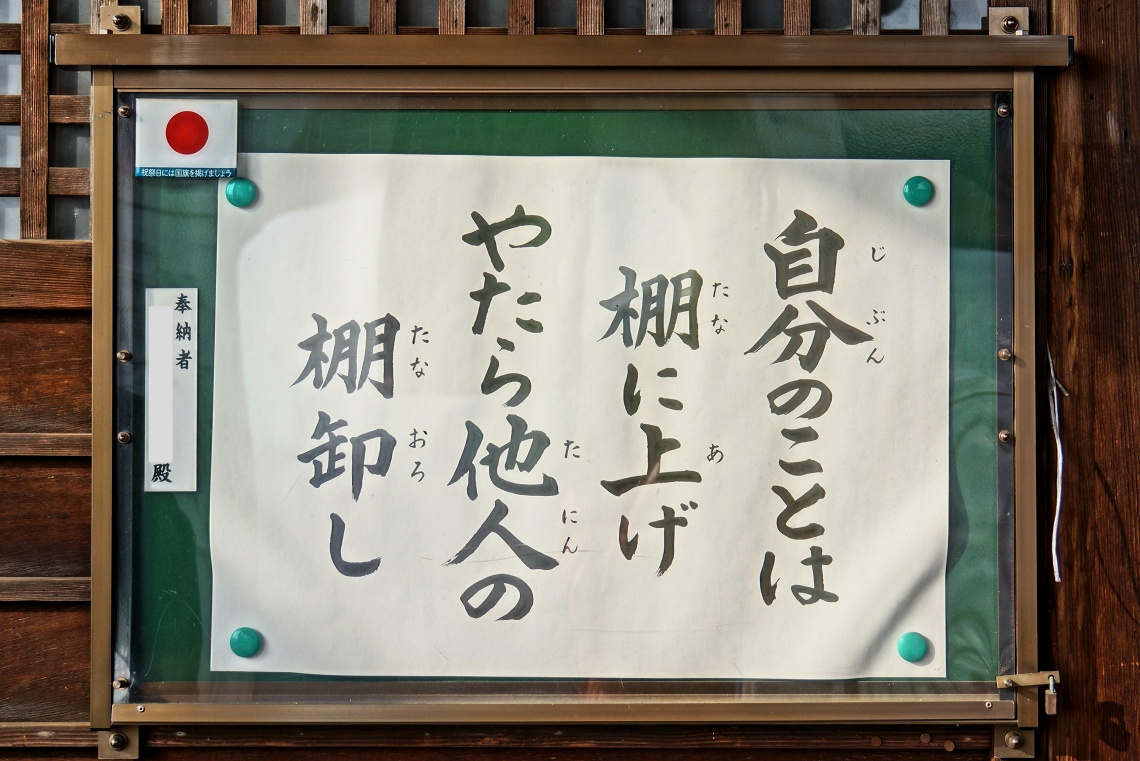 自分のことは
棚に上げ
やたら他人の
棚卸し
じ
ぶん
たな
あ
た
にん
たな
おろ
祝祭日には国旗を掲げましょう
奉納者
殿